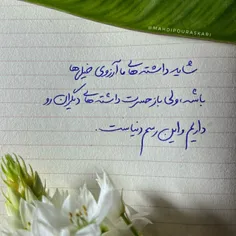 @MAHDIPOURASKARI
شاید داشته هایِ ما آرزوی خیلی ها
باشه، ولی باز حسرت داشته هایِ دیگران رو
داریم و این رسم دنیاست.